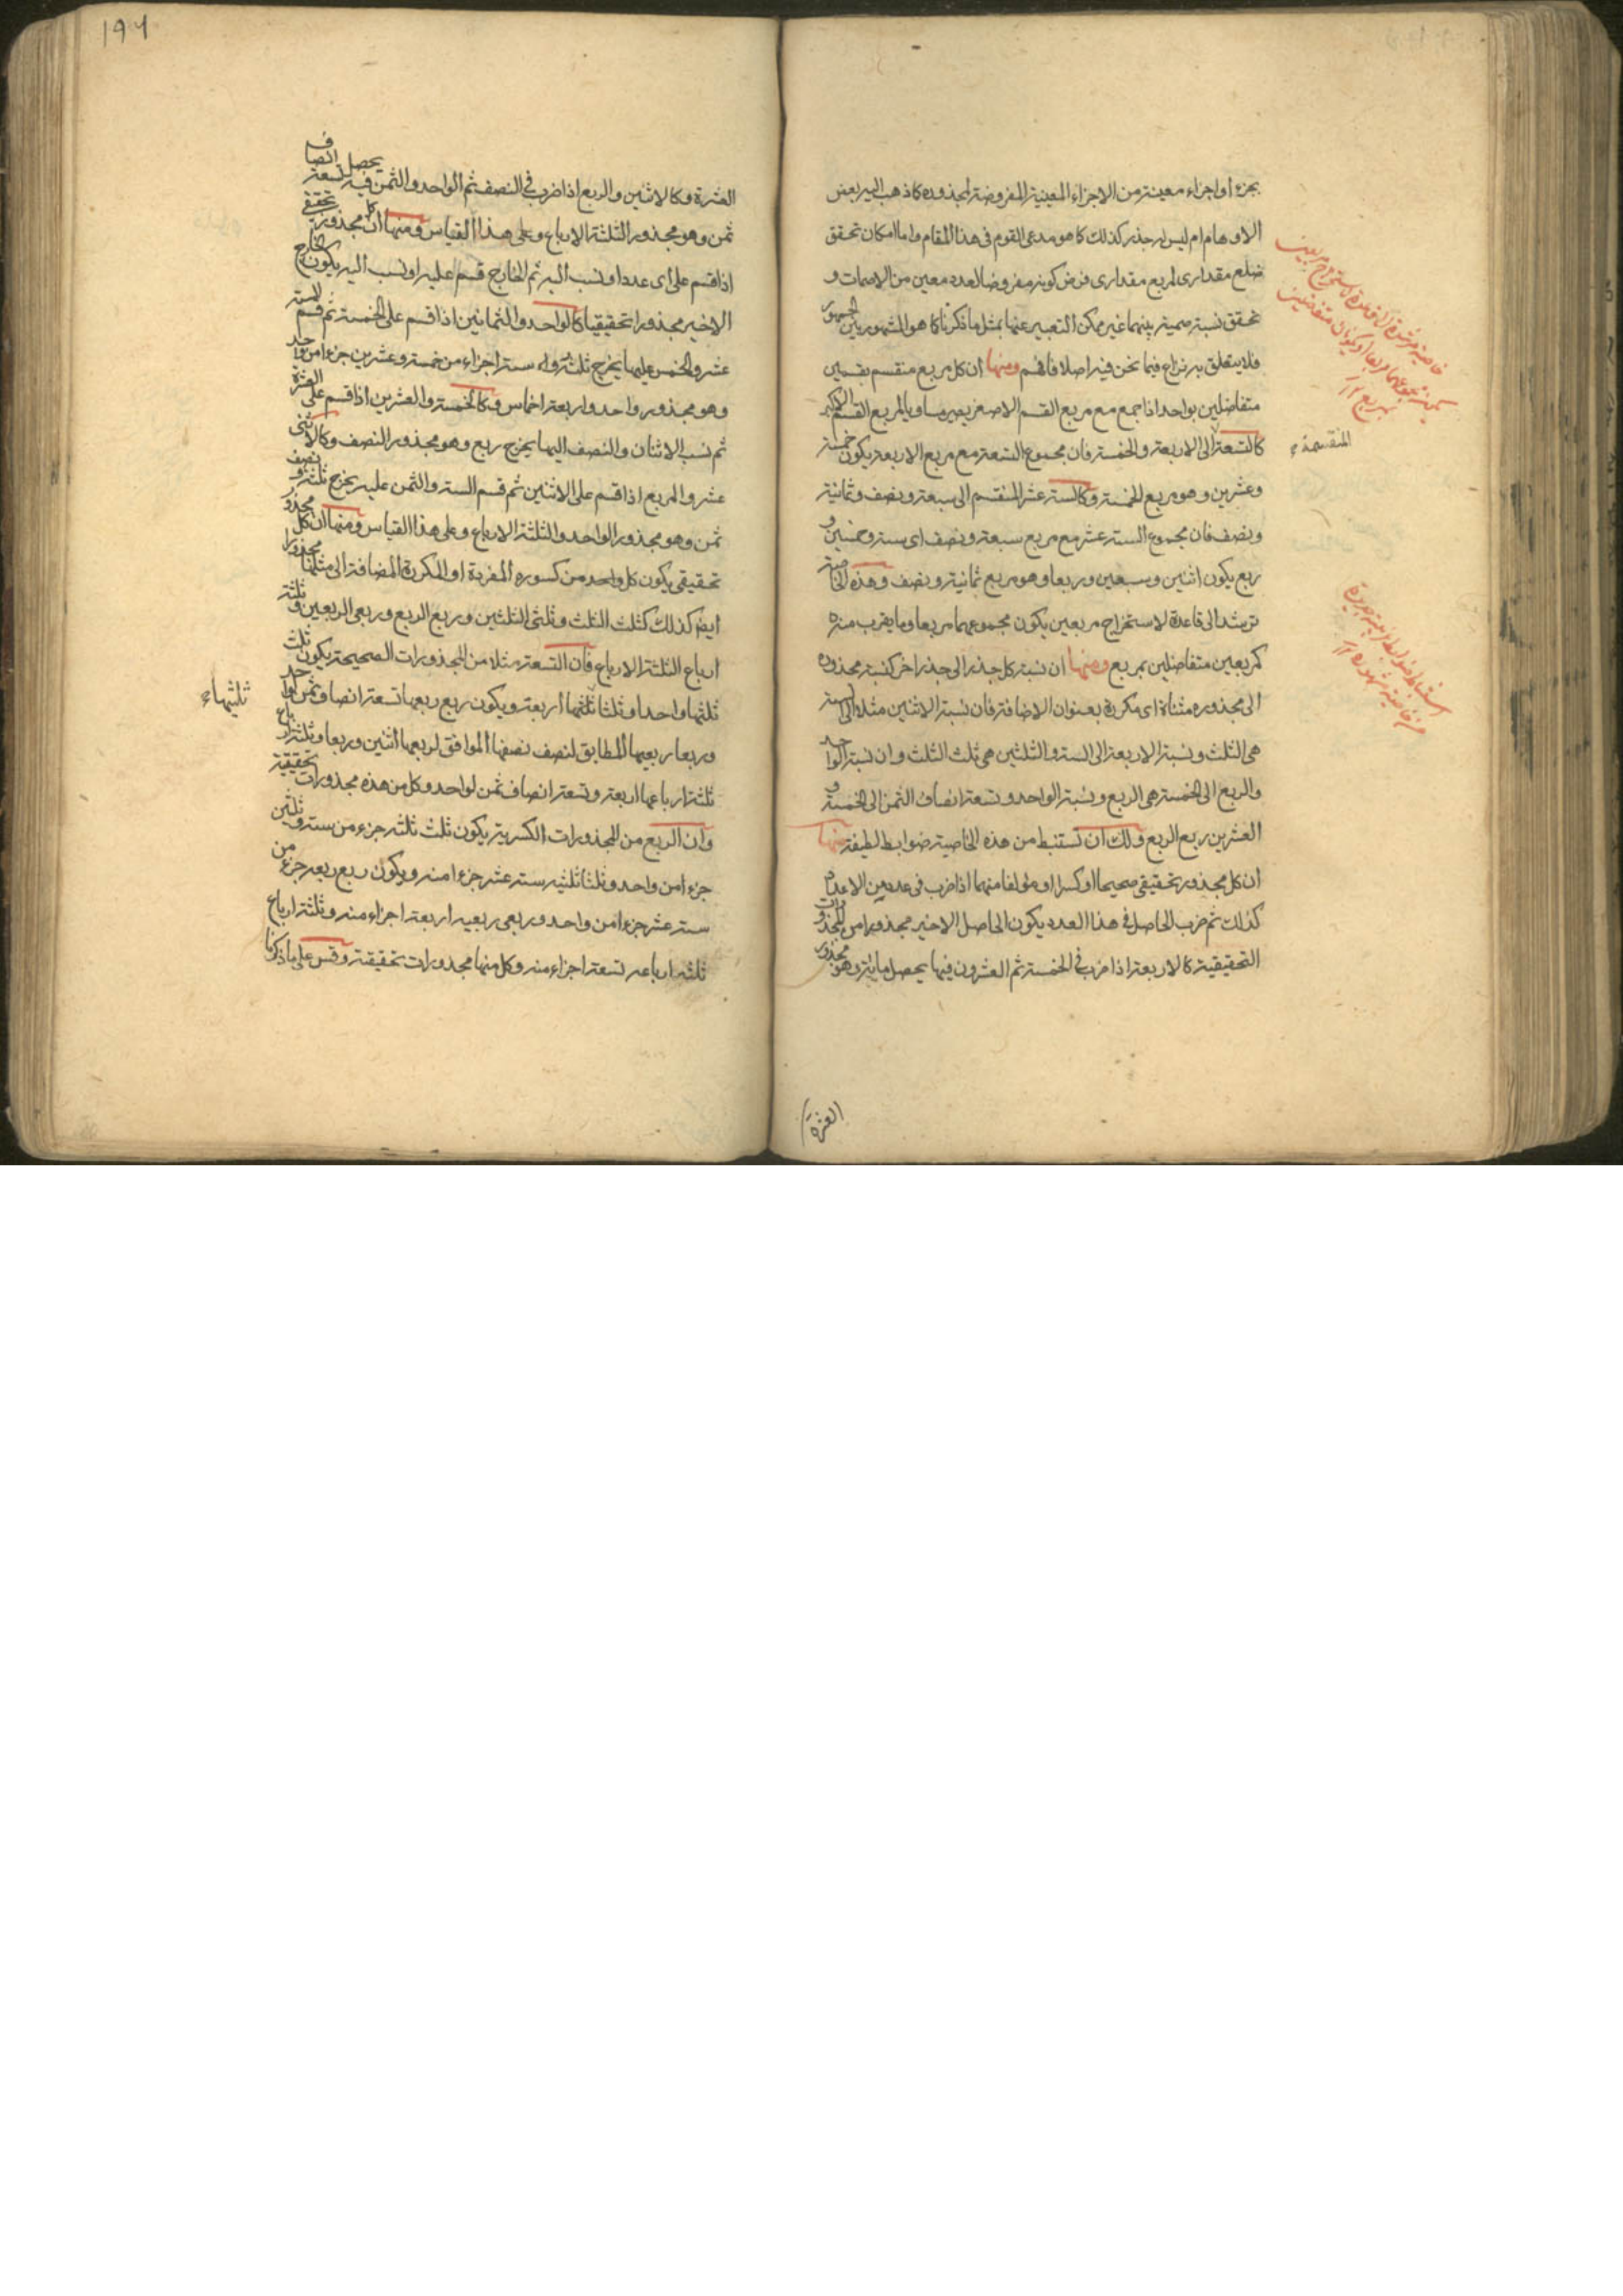 بجزء او اجزاء معينة من الاجزاء المعينية المفروضة لمجذوره كما ذهب اليه بعض
الاوهام ام ليس له جذر كذلك كما هو مدعى القوم فى هذا المقام واما امكان تحقق
ضلع مقدارى لمربع مقدارى فرض كونه مفروضا لعدد معين من الاصمات و
تحقق نسبة صمية بينهما غير ممكن التعبير عنها بمثل ما ذكرنا كما هو المشهور بين الجمهور
فلا يتعلق به نزاع فيما نحن فيه اصلا فافهم ومنها ان كل مربع منقسم بقسمين
متفاضلين بواحد اذا جمع مع مربع القسم الاصغر يصير مساويا لمربع القسم الاكبر
كالتسعة الى الاربعة والخمسة فان مجموع التسعة مع مربع الاربعة يكون خمسة
المنقسمة
وعشرين وهو مربع الخمسة وكالستة عشر المنقسم الى سبعة ونصف وثمانية
ونصف فان مجموع الستة عشر مع مربع سبعة ونصف اى ستة وخمسين و
ربع يكون اثنين وسبعين وربعا وهو مربع ثمانية ونصف وهذه الخاصية
ترشد الى قاعدة لاستخراج مربعين يكون مجموعهما مربعا وما يقرب منه
كمربعين متفاضلين بمربع ومنها ان نسبة كل جذر الى جذر اخر كنسبة مجذوره
الى مجذوره مثناة اى مكررة بعنوان الاضافة فان نسبة الاثنين مثلا الى الستة
هى الثلث ونسبة الاربعة الى الستة والثلثين هى ثلث الثلث وان نسبة الواحد
والربع الى الخمسة هى الربع ونسبة الواحد وتسعة انصاف الثمن الى الخمسة و
العشرين ربع الربع ولك ان تستنبط من هذه الخاصية ضوابط لطيفة منها
ان كل مجذور تحقيقى صحيحا او كسرا او مؤلفا منهما اذا ضرب فى عدد من الاعداد
كذلك ثم ضرب الحاصل فى هذا العدد يكون الحاصل الاخير مجذورا من المجذورات
التحقيقية كالاربعة اذا ضرب فى الخمسة ثم العشرون فيها يحصل مائة وهو مجذور
العشرة
١٩٦
العشرة وكالاثنين والربع اذا ضرب فى النصف ثم الواحد والثمن فيه يحصل تسعة انصاف
ثمن وهو مجذور الثلثة الارباع وعلى هذا القياس ومنها ان كل مجذور تحقيقى
اذا قسم على اى عدد او نسب اليه ثم الخارج قسم عليه او نسب اليه يكون الخارج
الاخير مجذورا تحقيقيا كالواحد والثمانين اذا قسم على الخمسة ثم قسم الستة
عشر والخمس عليها يخرج ثلثة و ستة اجزاء من خمسة وعشرين جزءا من واحد
وهو مجذور واحد واربعة اخماس وكالخمسة والعشرين اذا قسم على العشرة
ثم نسب الاثنان والنصف اليها يخرج ربع وهو مجذور النصف وكالاثنى
عشر والربع اذا قسم على الاثنين ثم قسم الستة والثمن عليه يخرج ثلثة ونصف
ثمن وهو مجذور الواحد والثلثة الارباع وعلى هذا القياس ومنها ان كل مجذور
تحقيقى يكون كل واحد من كسوره المفردة او المكررة المضافة الى مثلها مجذورا
ايضا كذلك كثلث الثلث وثلثى الثلثين وربع الربع وربعى الربعين وثلثة
ارباع الثلثة الارباع فان التسعة مثلا من المجذورات الصحيحة يكون ثلث
ثلثها واحدا وثلثا ثلثها اربعة ويكون ربع ربعها تسعة انصاف ثمن الواحد
ثلثيها
وربعا ربعيها المطابق لنصف نصفها الموافق لربعها اثنين وربعا وثلثة ارباع
ثلثة ارباعها اربعة وتسعة انصاف ثمن لواحد وكل من هذه مجذورات تحقيقية
وان الربع من المجذورات الكسرية يكون ثلث ثلثه جزء من ستة وثلثين
جزءا من واحد وثلثا ثلثيه ستة عشر جزءا منه ويكون ربع ربعه جزء من
ستة عشر جزءا من واحد وربعى ربعيه اربعة اجزاء منه وثلثة ارباع
ثلثة ارباعه تسعة اجزاء منه وكل منها مجذورات تحقيقية وقس على ما ذكرنا